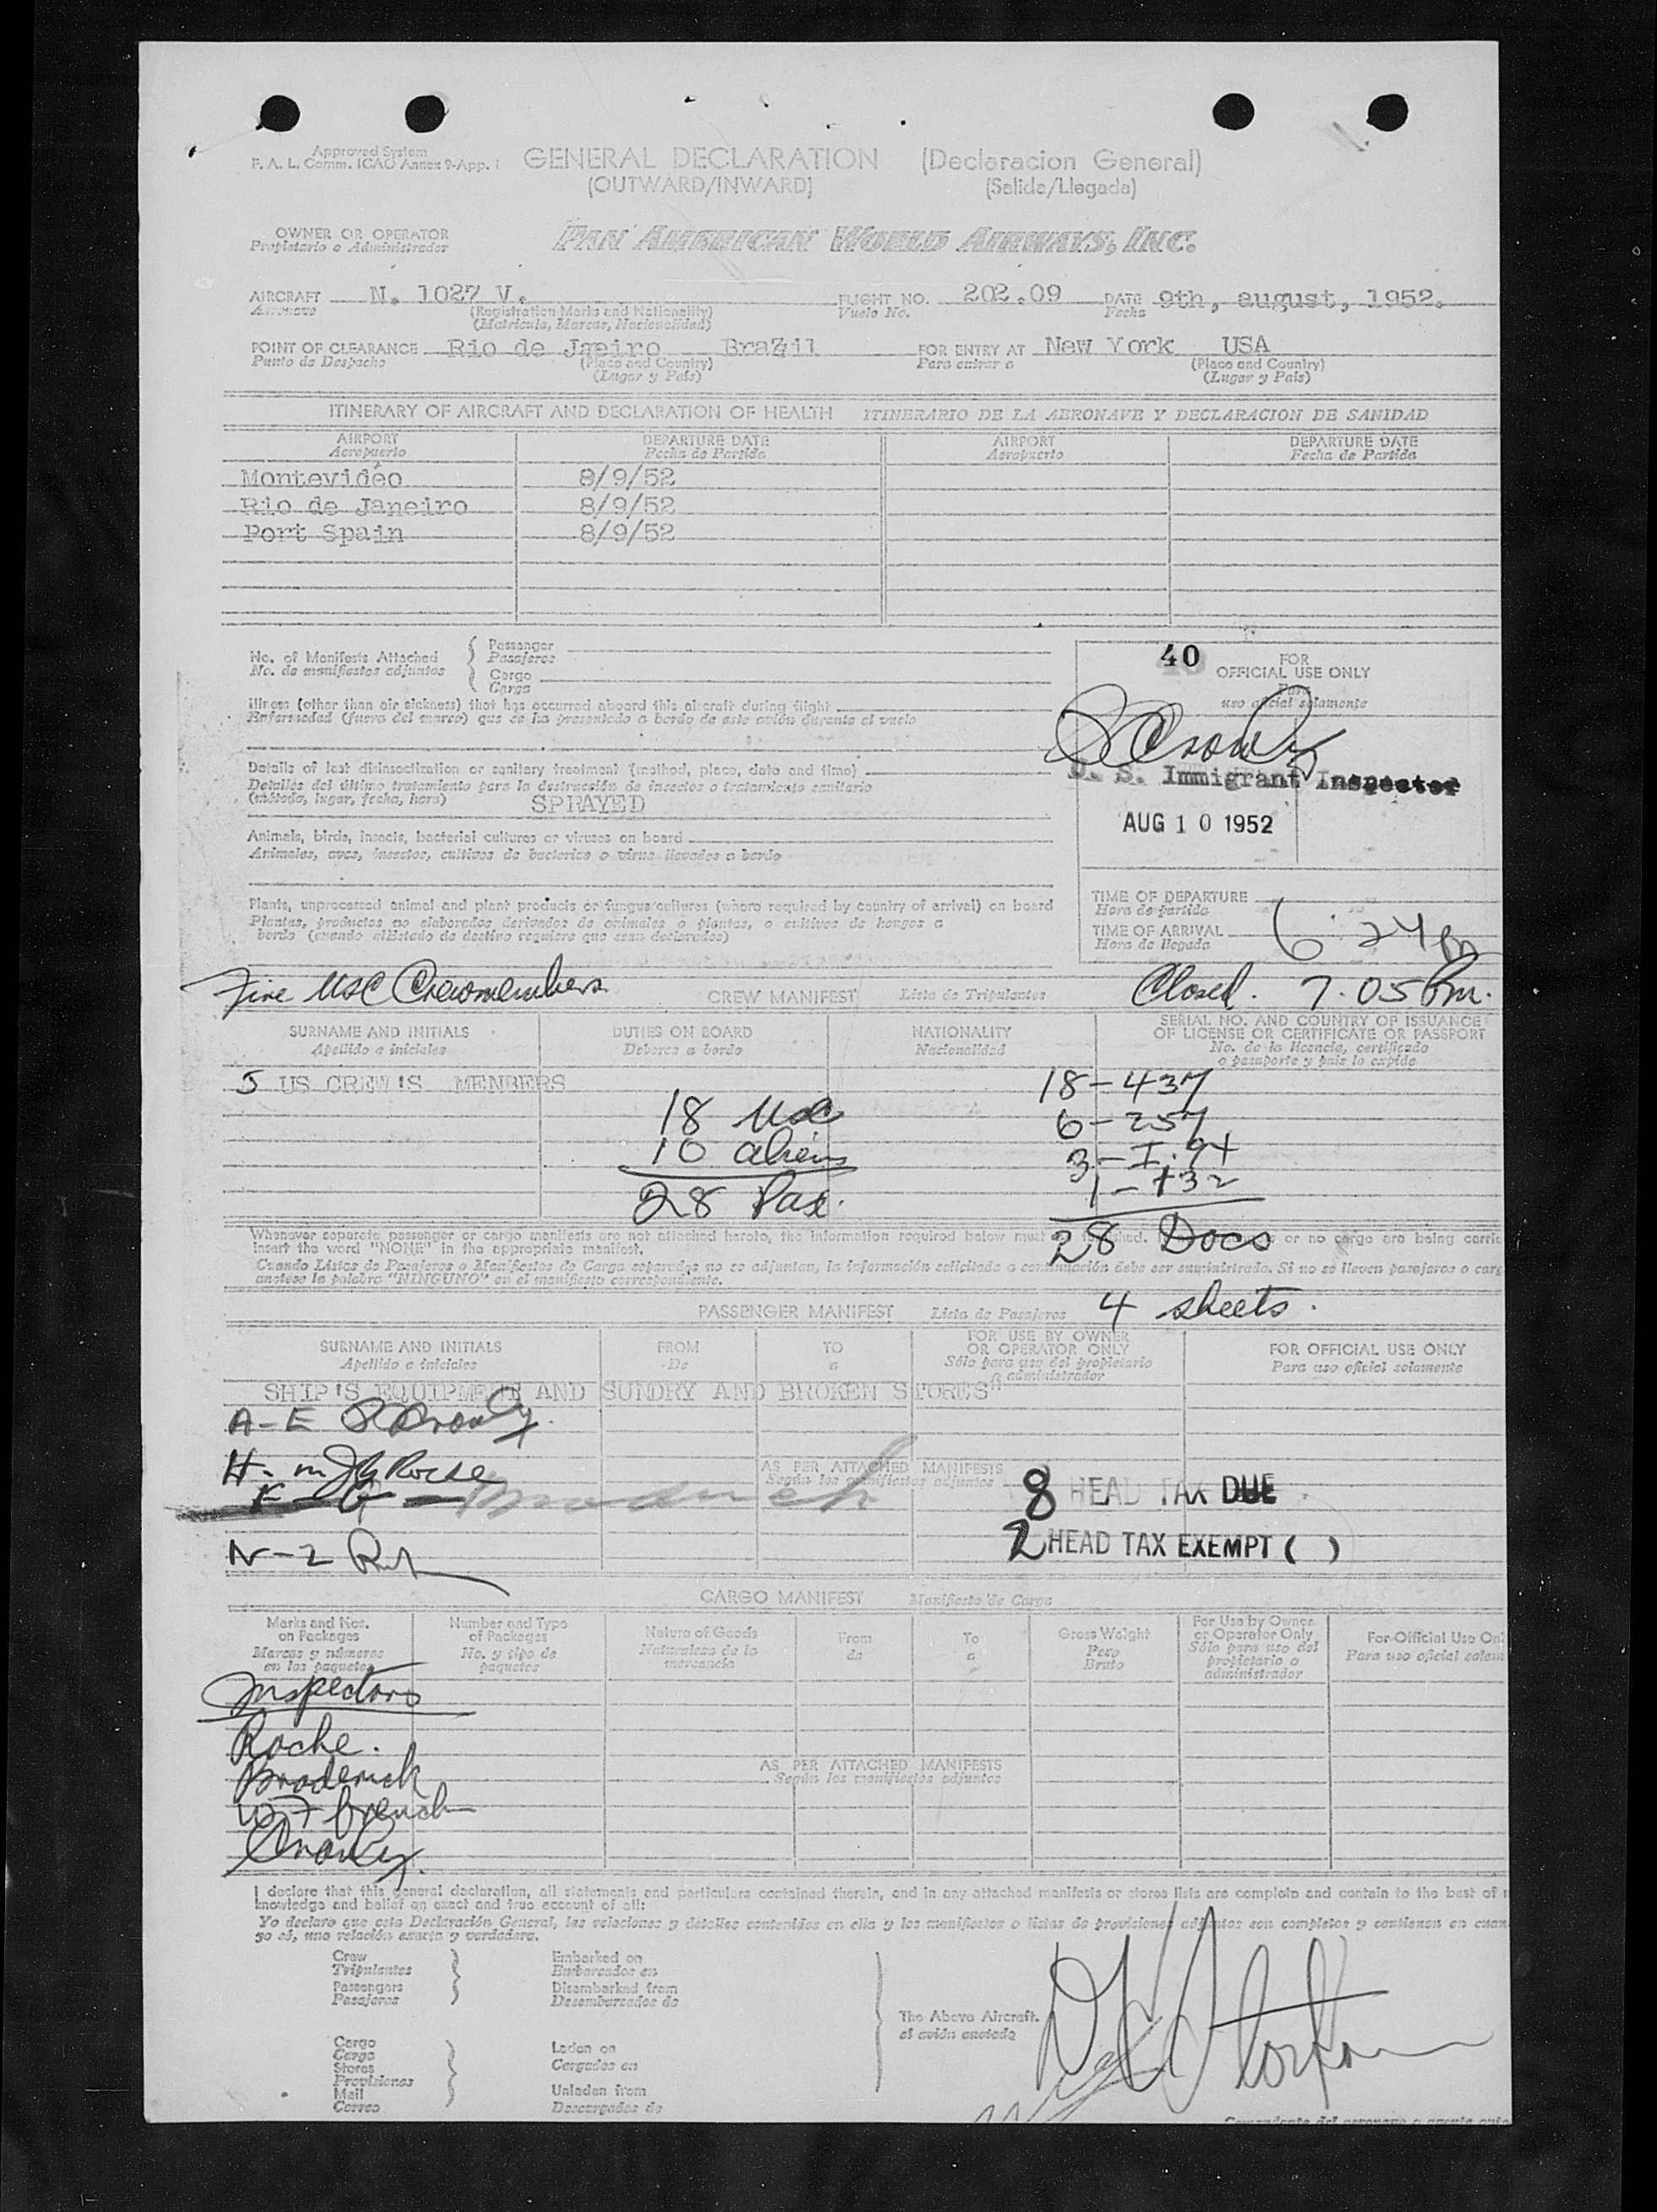 Approved System
F. A. L. Comm. ICAO Annex 9-App. 1
GENERAL DECLARATION (Declaracion General)
(OUTWARD/INWARD) (Salida/Llegada)
OWNER OR OPERATOR
Propietario o Administrador
PAN AMERICAN WORLD AIRWAYS, INC.
AIRCRAFT N. 1027 V. FLIGHT NO. 202.09 DATE 9th, august, 1952.
Aeronave (Registration Marks and Nationality) Vuelo No. Fecha
(Matricula, Marcas, Nacionalidad)
POINT OF CLEARANCE Rio de Jaeiro Brazil FOR ENTRY AT New York USA
Punto de Despacho (Place and Country) Para entrar a (Place and Country)
(Lugar y Pais) (Lugar y Pais)
ITINERARY OF AIRCRAFT AND DECLARATION OF HEALTH ITINERARIO DE LA AERONAVE Y DECLARACION DE SANIDAD
AIRPORT DEPARTURE DATE AIRPORT DEPARTURE DATE
Aeropuerto Fecha de Partida Aeropuerto Fecha de Partida
Montevideo 8/9/52
Rio de Janeiro 8/9/52
Port Spain 8/9/52
No. of Manifests Attached
No. de manifiestos adjuntos
Passenger
Pasajeros
Cargo
Carga
40 FOR
OFFICIAL USE ONLY
Para
uso oficial solamente
Illness (other than air sickness) that has occurred aboard this aircraft during flight
Enfermedad (fuera del mareo) que se ha presentado a bordo de este avión durante el vuelo
U. S. Immigrant Inspector
AUG 10 1952
Details of last disinsectization or sanitary treatment (method, place, date and time)
Detalles del último tratamiento para la destrucción de insectos o tratamiento sanitario
(método, lugar, fecha, hora) SPRAYED
Animals, birds, insects, bacterial cultures or viruses on board
Animales, aves, insectos, cultivos de bacterias o virus llevados a bordo
Plants, unprocessed animal and plant products or fungus cultures (where required by country of arrival) on board
Plantas, productos no elaborados derivados de animales o plantas, o cultivos de hongos a
bordo (cuando el Estado de destino requiere que sean declarados)
TIME OF DEPARTURE
Hora de partida
TIME OF ARRIVAL 6:24 Pm
Hora de llegada
Five USC Crewmembers Closed. 7.05 Pm.
CREW MANIFEST Lista de Tripulantes
SURNAME AND INITIALS DUTIES ON BOARD NATIONALITY SERIAL NO. AND COUNTRY OF ISSUANCE
OF LICENSE OR CERTIFICATE OR PASSPORT
Apellido e iniciales Deberes a bordo Nacionalidad No. de la licencia, certificado
o pasaporte y pais lo expide
5 US CREW'S MENBERS
18 USC
10 aliens
28 Pax.
18-437
6-257
3-I.94
1-
28 Docs
Whenever separate passenger or cargo manifests are not attached hereto, the information required below must or no cargo are being
insert the word "NONE" in the appropriate manifest.
Cuando Listas de Pasajeros o Manifiestos de Carga separados no se adjuntan, la información solicitada a continuación debe ser suministrada. Si no se lleven pasajeros o
anotese la palabra "NINGUNO" en el manifiesto correspondiente.
PASSENGER MANIFEST Lista de Pasajeros 4 sheets.
SURNAME AND INITIALS FROM TO FOR USE BY OWNER
OR OPERATOR ONLY FOR OFFICIAL USE ONLY
Apellido e iniciales De a Sólo para uso del propietario
o administrador Para uso oficial solamente
SHIP'S EQUIPMENT AND SUNDRY AND BROKEN STORES"
A-E
H-M J G Roche
AS PER ATTACHED MANIFESTS
Según los manifiestos adjuntos
8 HEAD TAX DUE
N-Z
2 HEAD TAX EXEMPT ( )
CARGO MANIFEST Manifiesto de Carga
Marks and Nos.
on Packages
Marcas y números
en los paquetes
Number and Type
of Packages
No. y tipo de
paquetes
Nature of Goods
Naturaleza de la
mercancia
From
de
To
a
Gross Weight
Peso
Bruto
For Use by Owner
or Operator Only
Sólo para uso del
propietario o
administrador
For Official Use
Para uso oficial
Inspectors
Roche.
Broderick
AS PER ATTACHED MANIFESTS
Según los manifiestos adjuntos
W F French
I declare that this general declaration, all statements and particulars contained therein, and in any attached manifests or stores lists are complete and contain to the best of
knowledge and belief an exact and true account of all:
Yo declaro que esta Declaración General, las relaciones y detalles contenidos en ella y los manifiestos o listas de provisiones adjuntos son completos y contienen en
yo sé, una relación exacta y verdadera.
Crew
Tripulantes
Passengers
Pasajeros
Embarked on
Embarcados en
Disembarked from
Desembarcados de
Cargo
Carga
Stores
Provisiones
Mail
Correo
Laden on
Cargados en
Unladen from
Descargados de
The Above Aircraft.
el avión anotado